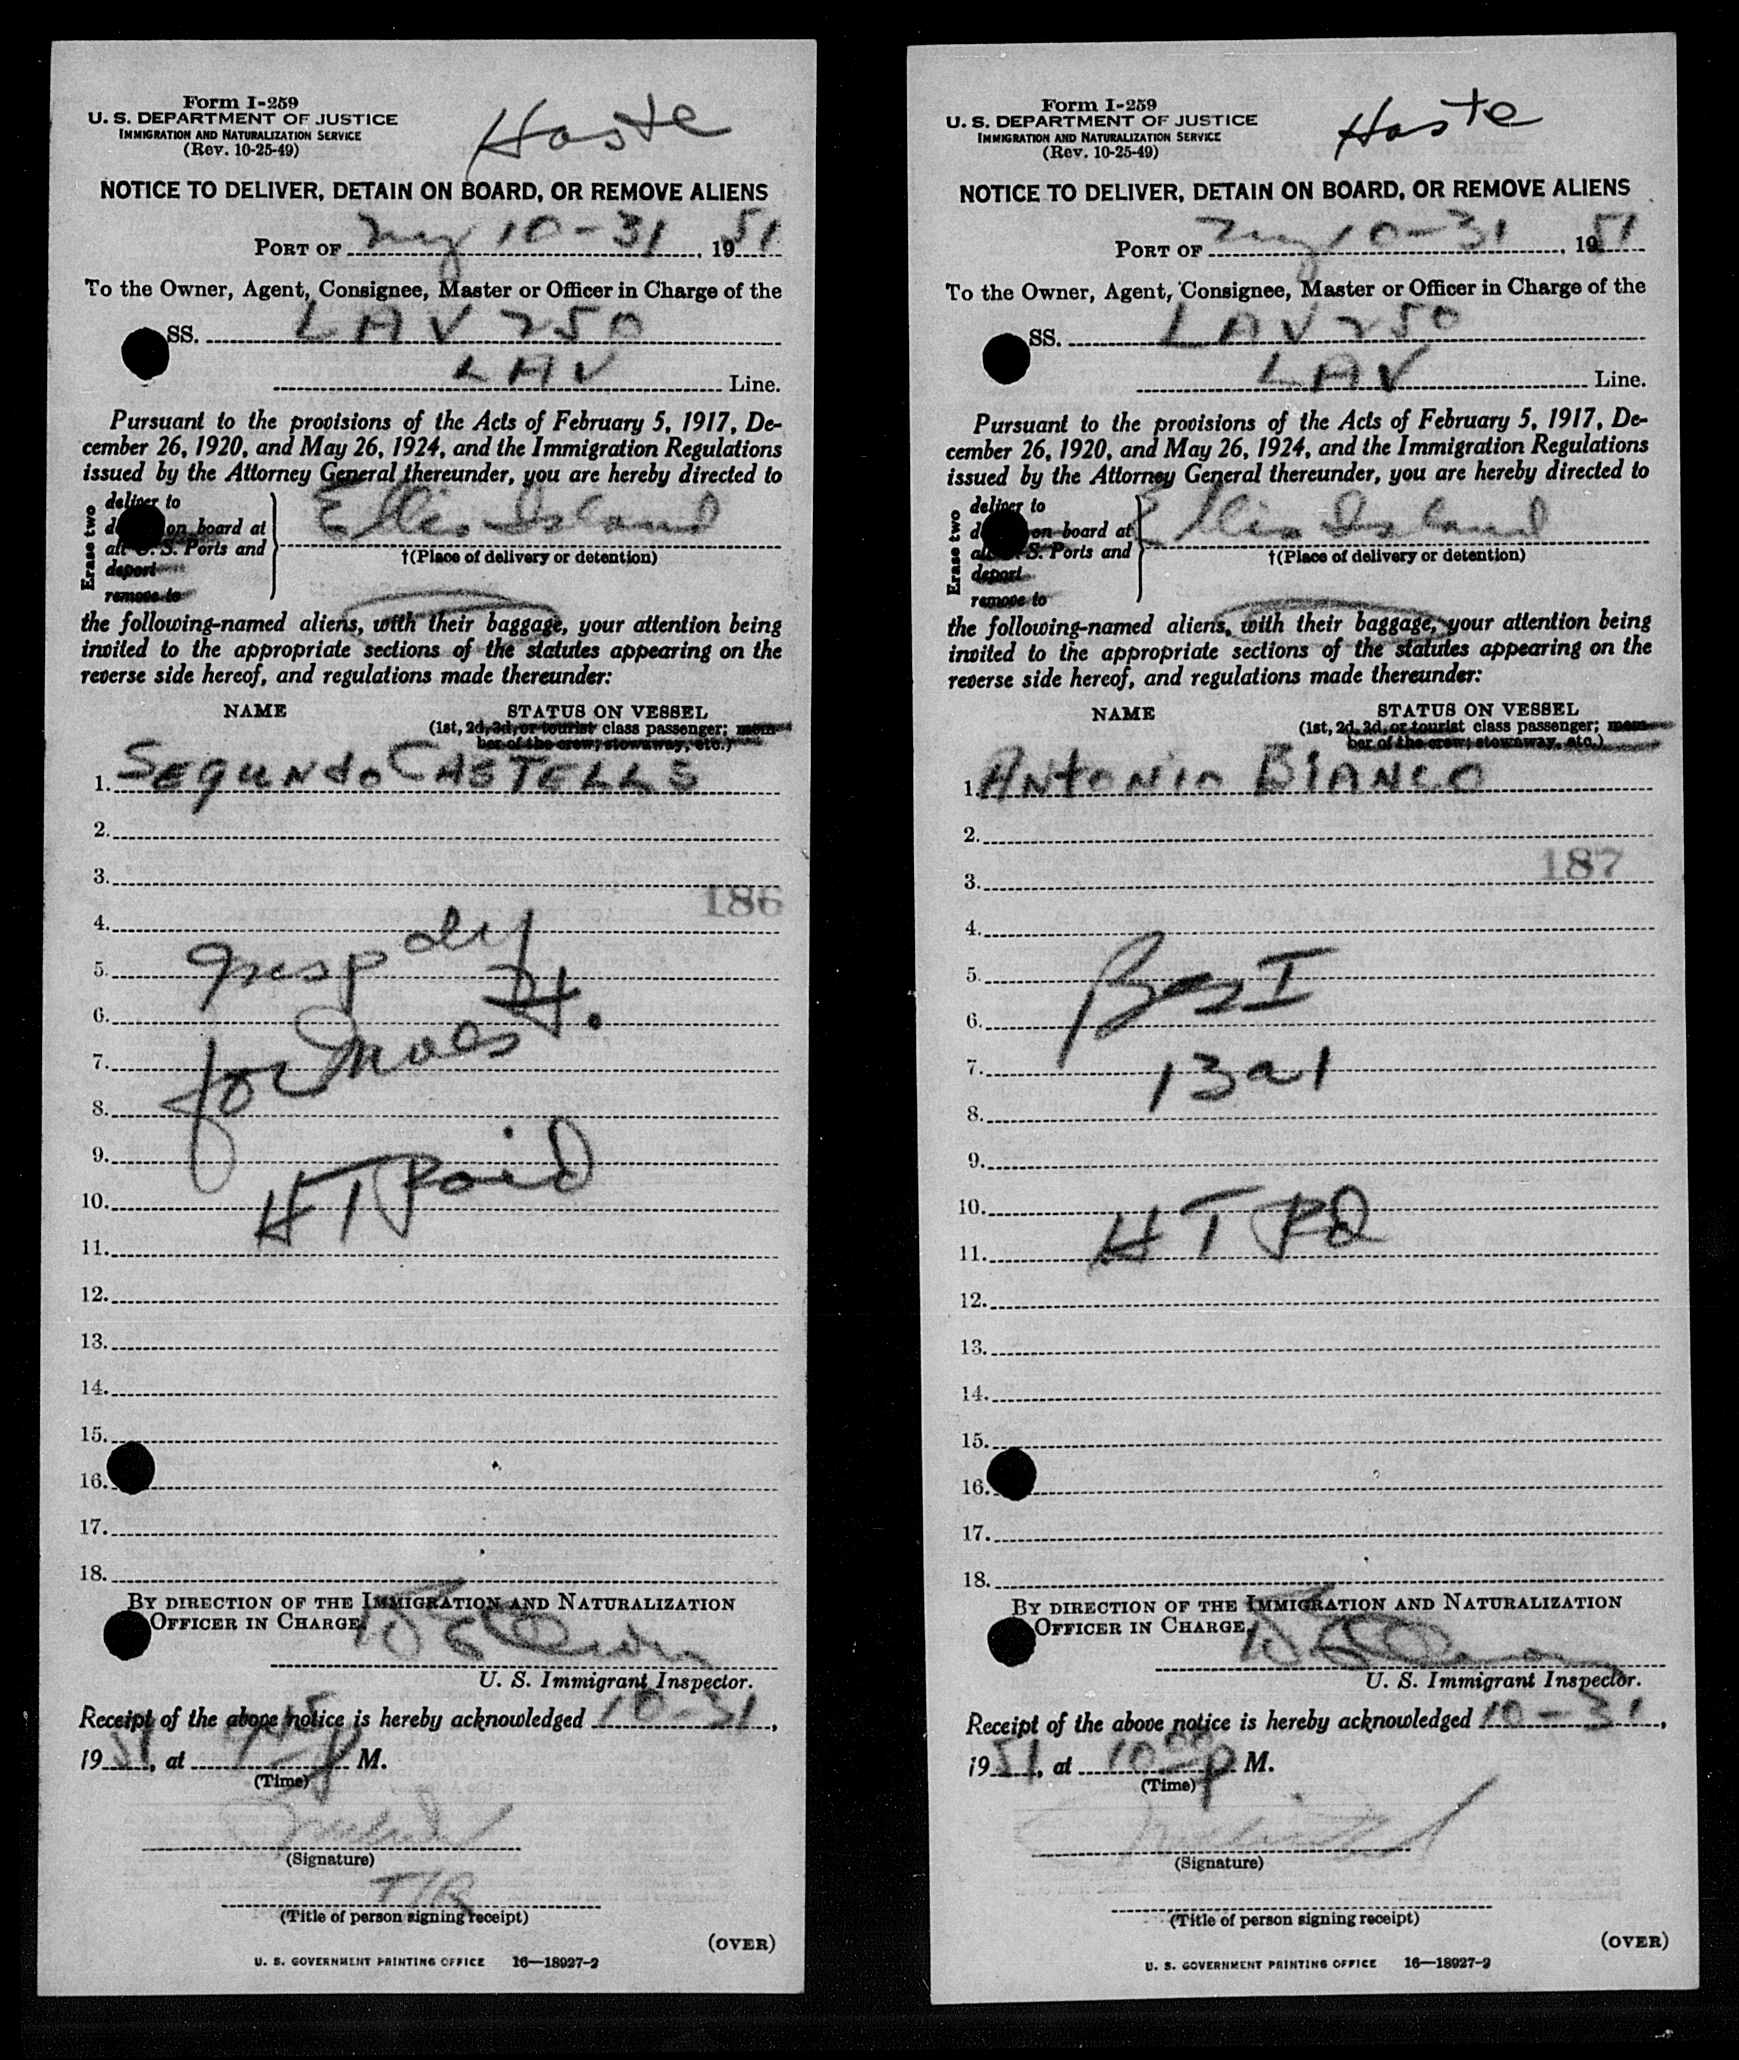 Form I-259
U. S. DEPARTMENT OF JUSTICE
IMMIGRATION AND NATURALIZATION SERVICE
(Rev. 10-25-49)
Haste
NOTICE TO DELIVER, DETAIN ON BOARD, OR REMOVE ALIENS
PORT OF NY 10-31, 1951
To the Owner, Agent, Consignee, Master or Officer in Charge of the
SS. LAV 250
LAV Line.
Pursuant to the provisions of the Acts of February 5, 1917, De-
cember 26, 1920, and May 26, 1924, and the Immigration Regulations
issued by the Attorney General thereunder, you are hereby directed to
Erase two
deliver to
on board at
all U. S. Ports and
deport
remove to
Ellis Island
†(Place of delivery or detention)
the following-named aliens, with their baggage, your attention being
invited to the appropriate sections of the statutes appearing on the
reverse side hereof, and regulations made thereunder:
NAME STATUS ON VESSEL
(1st, 2d, 3d, or tourist class passenger; mem-
ber of the crew; stowaway, etc.)
1. SEGUNDO CASTELLS
2.
3.
186
4.
5.
6.
7. for
8.
9.
10. HT Paid
11.
12.
13.
14.
15.
16.
17.
18.
BY DIRECTION OF THE IMMIGRATION AND NATURALIZATION
OFFICER IN CHARGE,
U. S. Immigrant Inspector.
Receipt of the above notice is hereby acknowledged 10-31,
1951, at M.
(Time)
(Signature)
(Title of person signing receipt)
(OVER)
U. S. GOVERNMENT PRINTING OFFICE 16—18927-2
Form I-259
U. S. DEPARTMENT OF JUSTICE
IMMIGRATION AND NATURALIZATION SERVICE
(Rev. 10-25-49)
Haste
NOTICE TO DELIVER, DETAIN ON BOARD, OR REMOVE ALIENS
PORT OF NY 10-31, 1951
To the Owner, Agent, Consignee, Master or Officer in Charge of the
SS. LAV 250
LAV Line.
Pursuant to the provisions of the Acts of February 5, 1917, De-
cember 26, 1920, and May 26, 1924, and the Immigration Regulations
issued by the Attorney General thereunder, you are hereby directed to
Erase two
deliver to
on board at
all U. S. Ports and
deport
remove to
Ellis Island
†(Place of delivery or detention)
the following-named aliens, with their baggage, your attention being
invited to the appropriate sections of the statutes appearing on the
reverse side hereof, and regulations made thereunder:
NAME STATUS ON VESSEL
(1st, 2d, 3d, or tourist class passenger; mem-
ber of the crew; stowaway, etc.)
1. ANTONIO BIANCO
2.
187
3.
4.
5.
6.
7. 13a1
8.
9.
10. HT PD
11.
12.
13.
14.
15.
16.
17.
18.
BY DIRECTION OF THE IMMIGRATION AND NATURALIZATION
OFFICER IN CHARGE,
U. S. Immigrant Inspector.
Receipt of the above notice is hereby acknowledged 10-31,
1951, at 10 00 p M.
(Time)
(Signature)
(Title of person signing receipt)
(OVER)
U. S. GOVERNMENT PRINTING OFFICE 16—18927-2